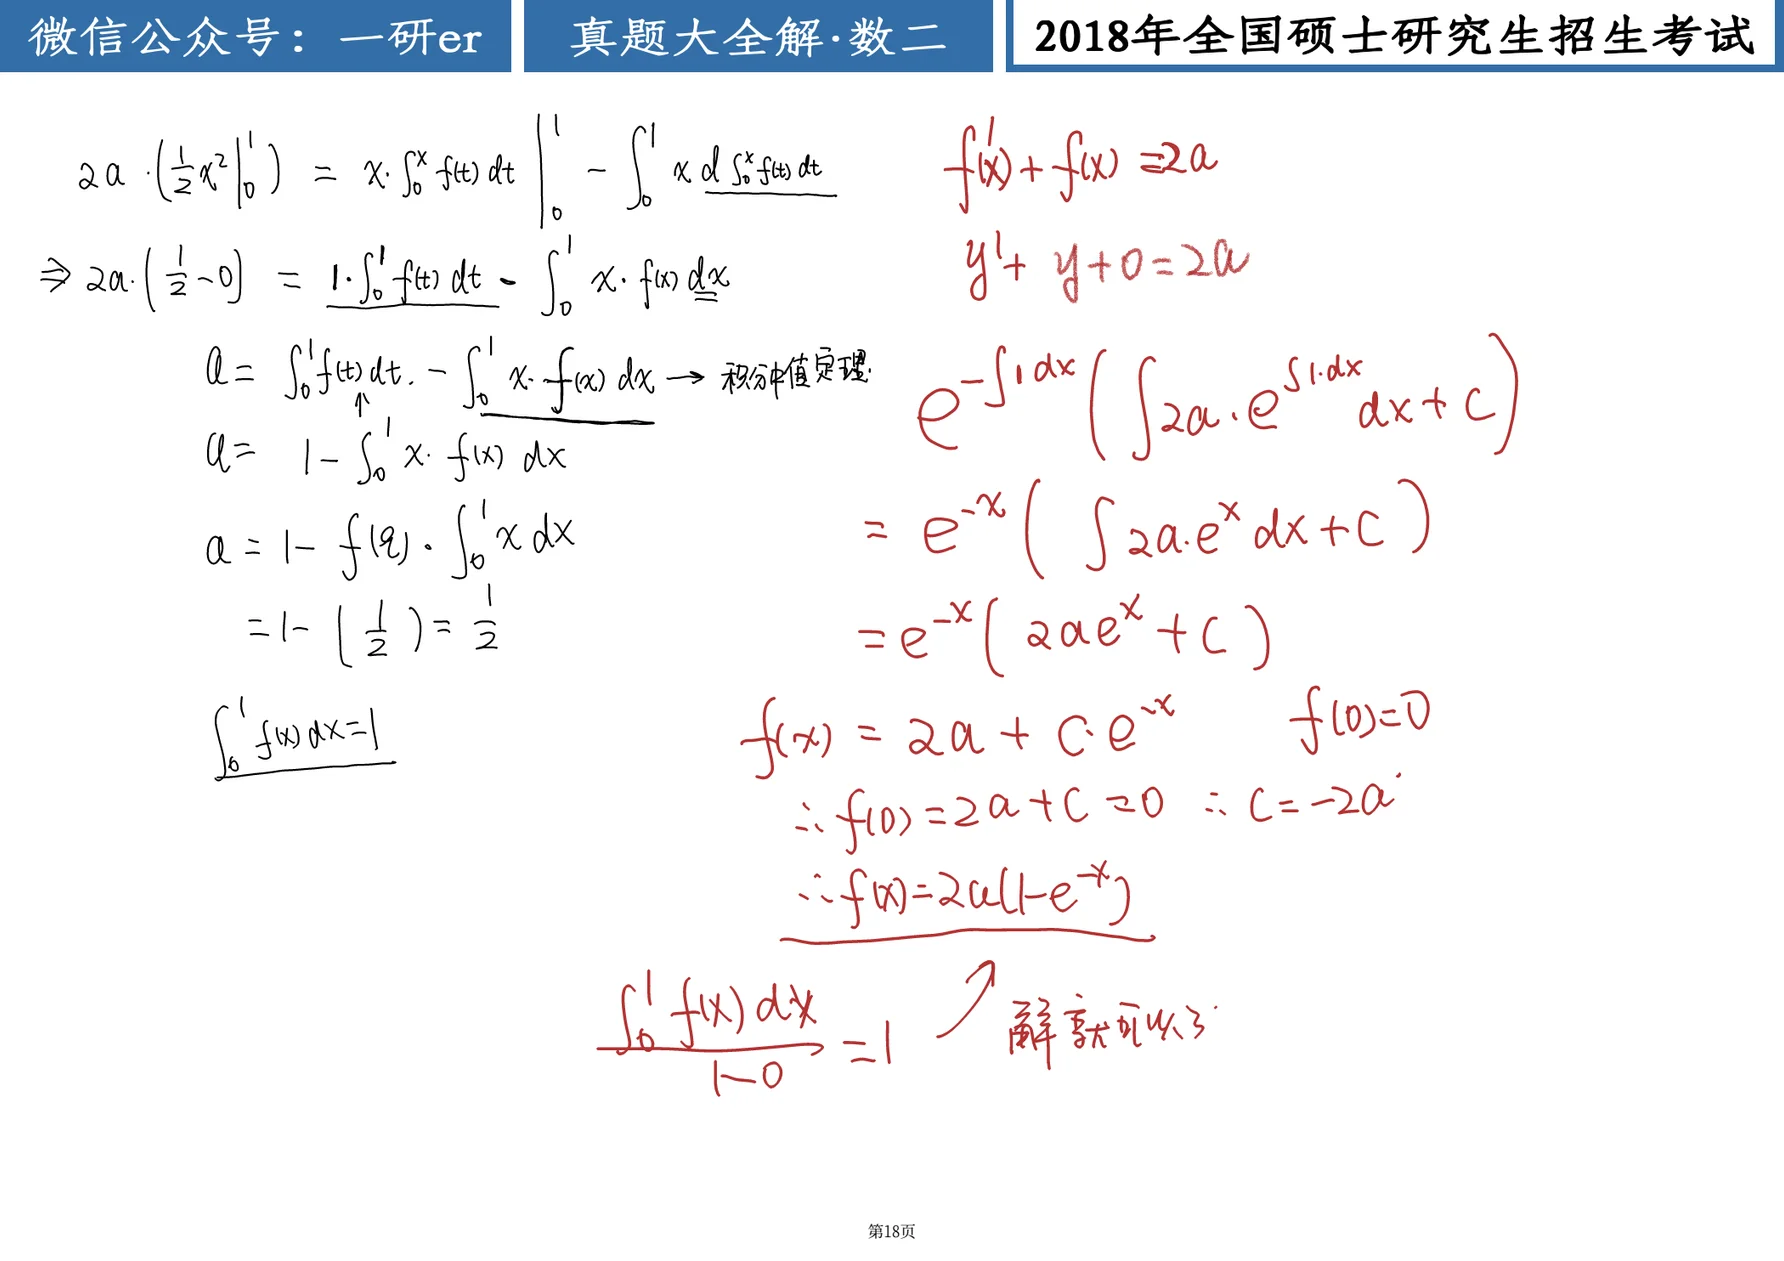 微信公众号：一研er
真题大全解·数二
2018年全国硕士研究生招生考试
2a·(1/2 x²|₀¹) = x·∫₀ˣ f(t) dt |₀¹ - ∫₀¹ x d ∫₀ˣ f(t) dt
⇒ 2a·(1/2 - 0) = 1·∫₀¹ f(t) dt - ∫₀¹ x·f(x) dx
a = ∫₀¹ f(t) dt. - ∫₀¹ x·f(x) dx → 积分中值定理.
↑
a = 1 - ∫₀¹ x·f(x) dx
a = 1 - f(ξ)·∫₀¹ x dx
= 1 - (1/2) = 1/2
∫₀¹ f(x) dx = 1
f'(x) + f(x) = 2a
y' + y + 0 = 2a
e^(-∫1 dx) (∫ 2a·e^(∫1·dx) dx + C)
= e^(-x) (∫ 2a·e^x dx + C)
= e^(-x) (2ae^x + C)
f(x) = 2a + C·e^(-x)  f(0) = 0
∴ f(0) = 2a + C = 0 ∴ C = -2a
∴ f(x) = 2a(1 - e^(-x))
∫₀¹ f(x) dx / (1-0) = 1 ↗ 解就可以了
第18页